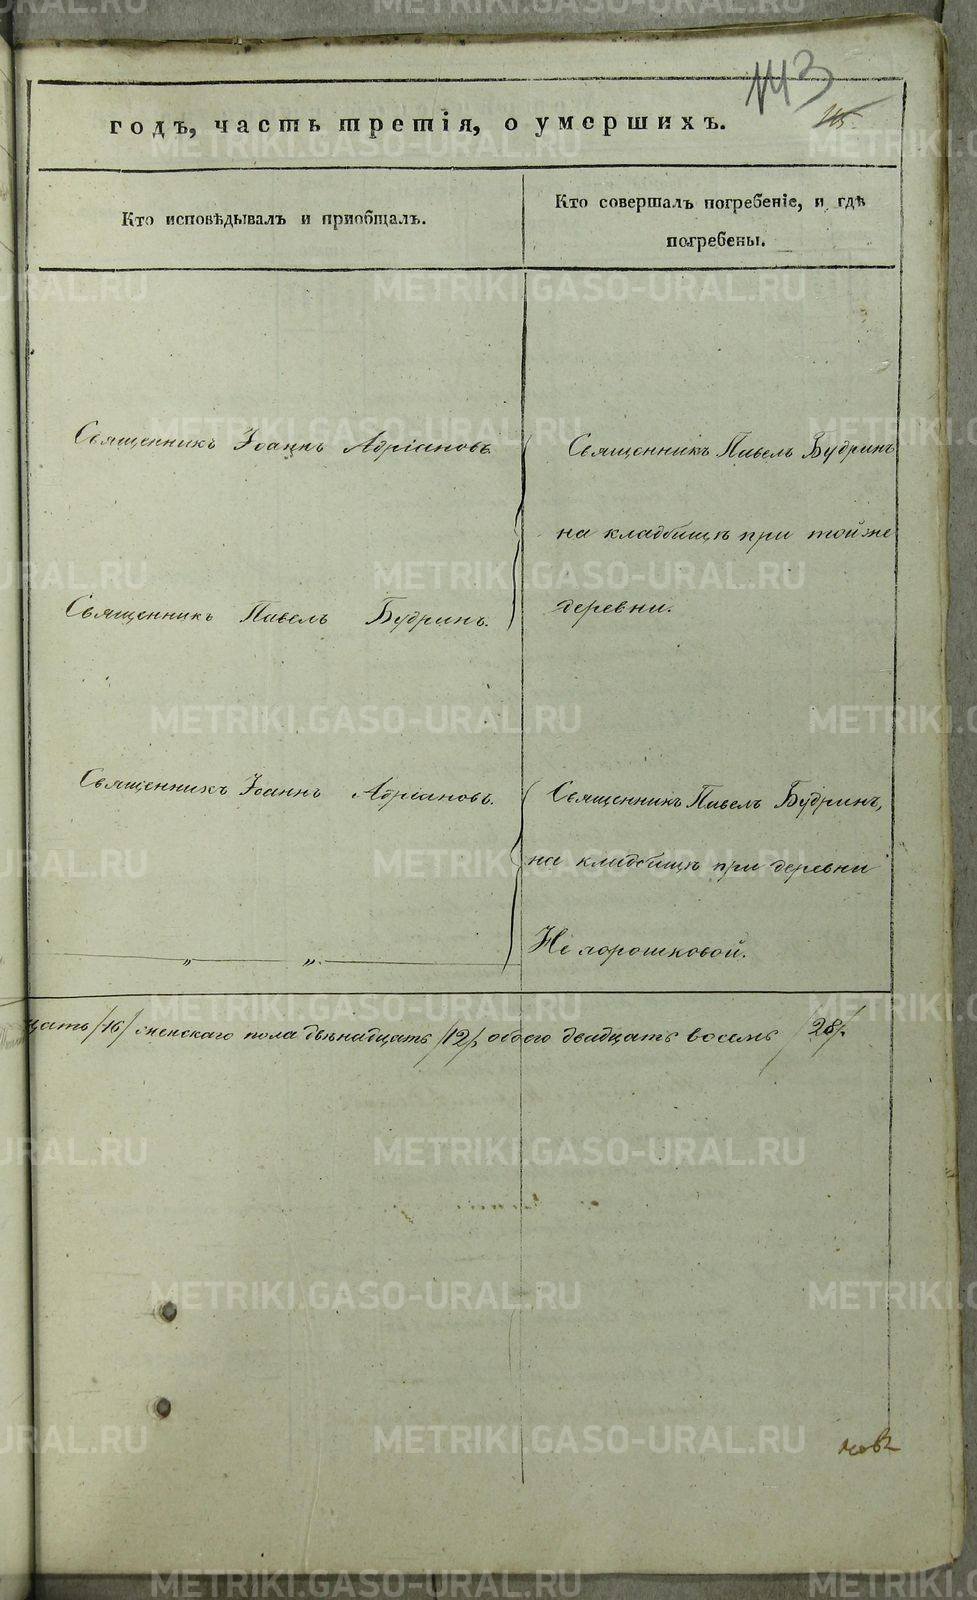 143
годъ, часть третія, о умершихъ.
Кто исповѣдывалъ и пріобщалъ.
Кто совершалъ погребеніе, и гдѣ
погребены.
Священникъ Іоаннъ Адріановъ
Священникъ Павелъ Будринъ
на кладбищѣ при тойже
деревни.
Священникъ Павелъ Будринъ.
Священникъ Іоаннъ Адріановъ.
Священникъ Павелъ Будринъ,
на кладбищѣ при деревни
„ „
цать /16/ женскаго пола двѣнадцать /12/, обоего двадцать восемь /28/.
METRIKI.GASO-URAL.RU